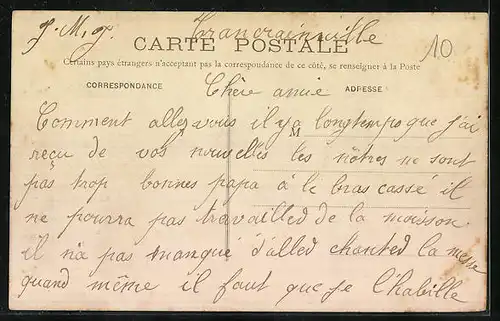 J. M. J. Francrainville
CARTE POSTALE
10
Certains pays étrangers n'acceptant pas la correspondance de ce côté, se renseigner à la Poste
CORRESPONDANCE
Chère amie
ADRESSE
M
Comment allez vous il y a longtemps que j'ai
reçu de vos nouvelles les nôtres ne sont
pas trop bonnes papa à le bras cassé il
ne pourra pas travailled de la moisson
il n'a pas manqué d'alled chanted la messe
quand même il faut que je l'habille